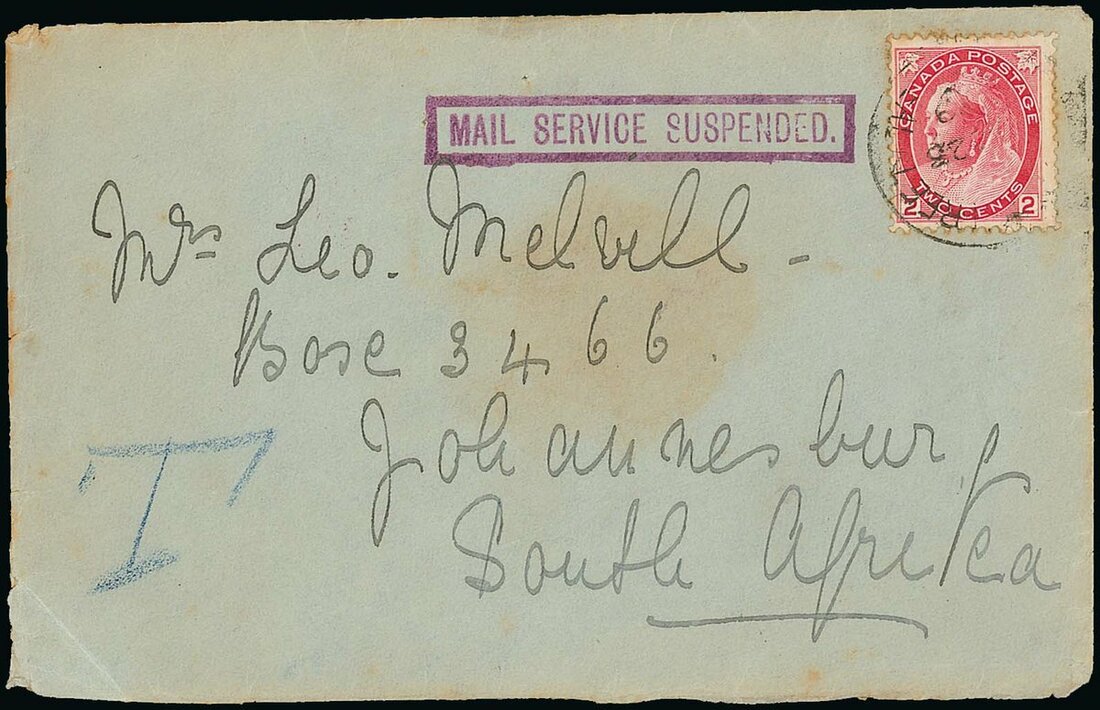 CANADA POSTAGE
2 TWO CENTS 2
MAIL SERVICE SUSPENDED.
Mrs Leo. Melvill -
Box 3466.
Johannesburg
South Africa
T